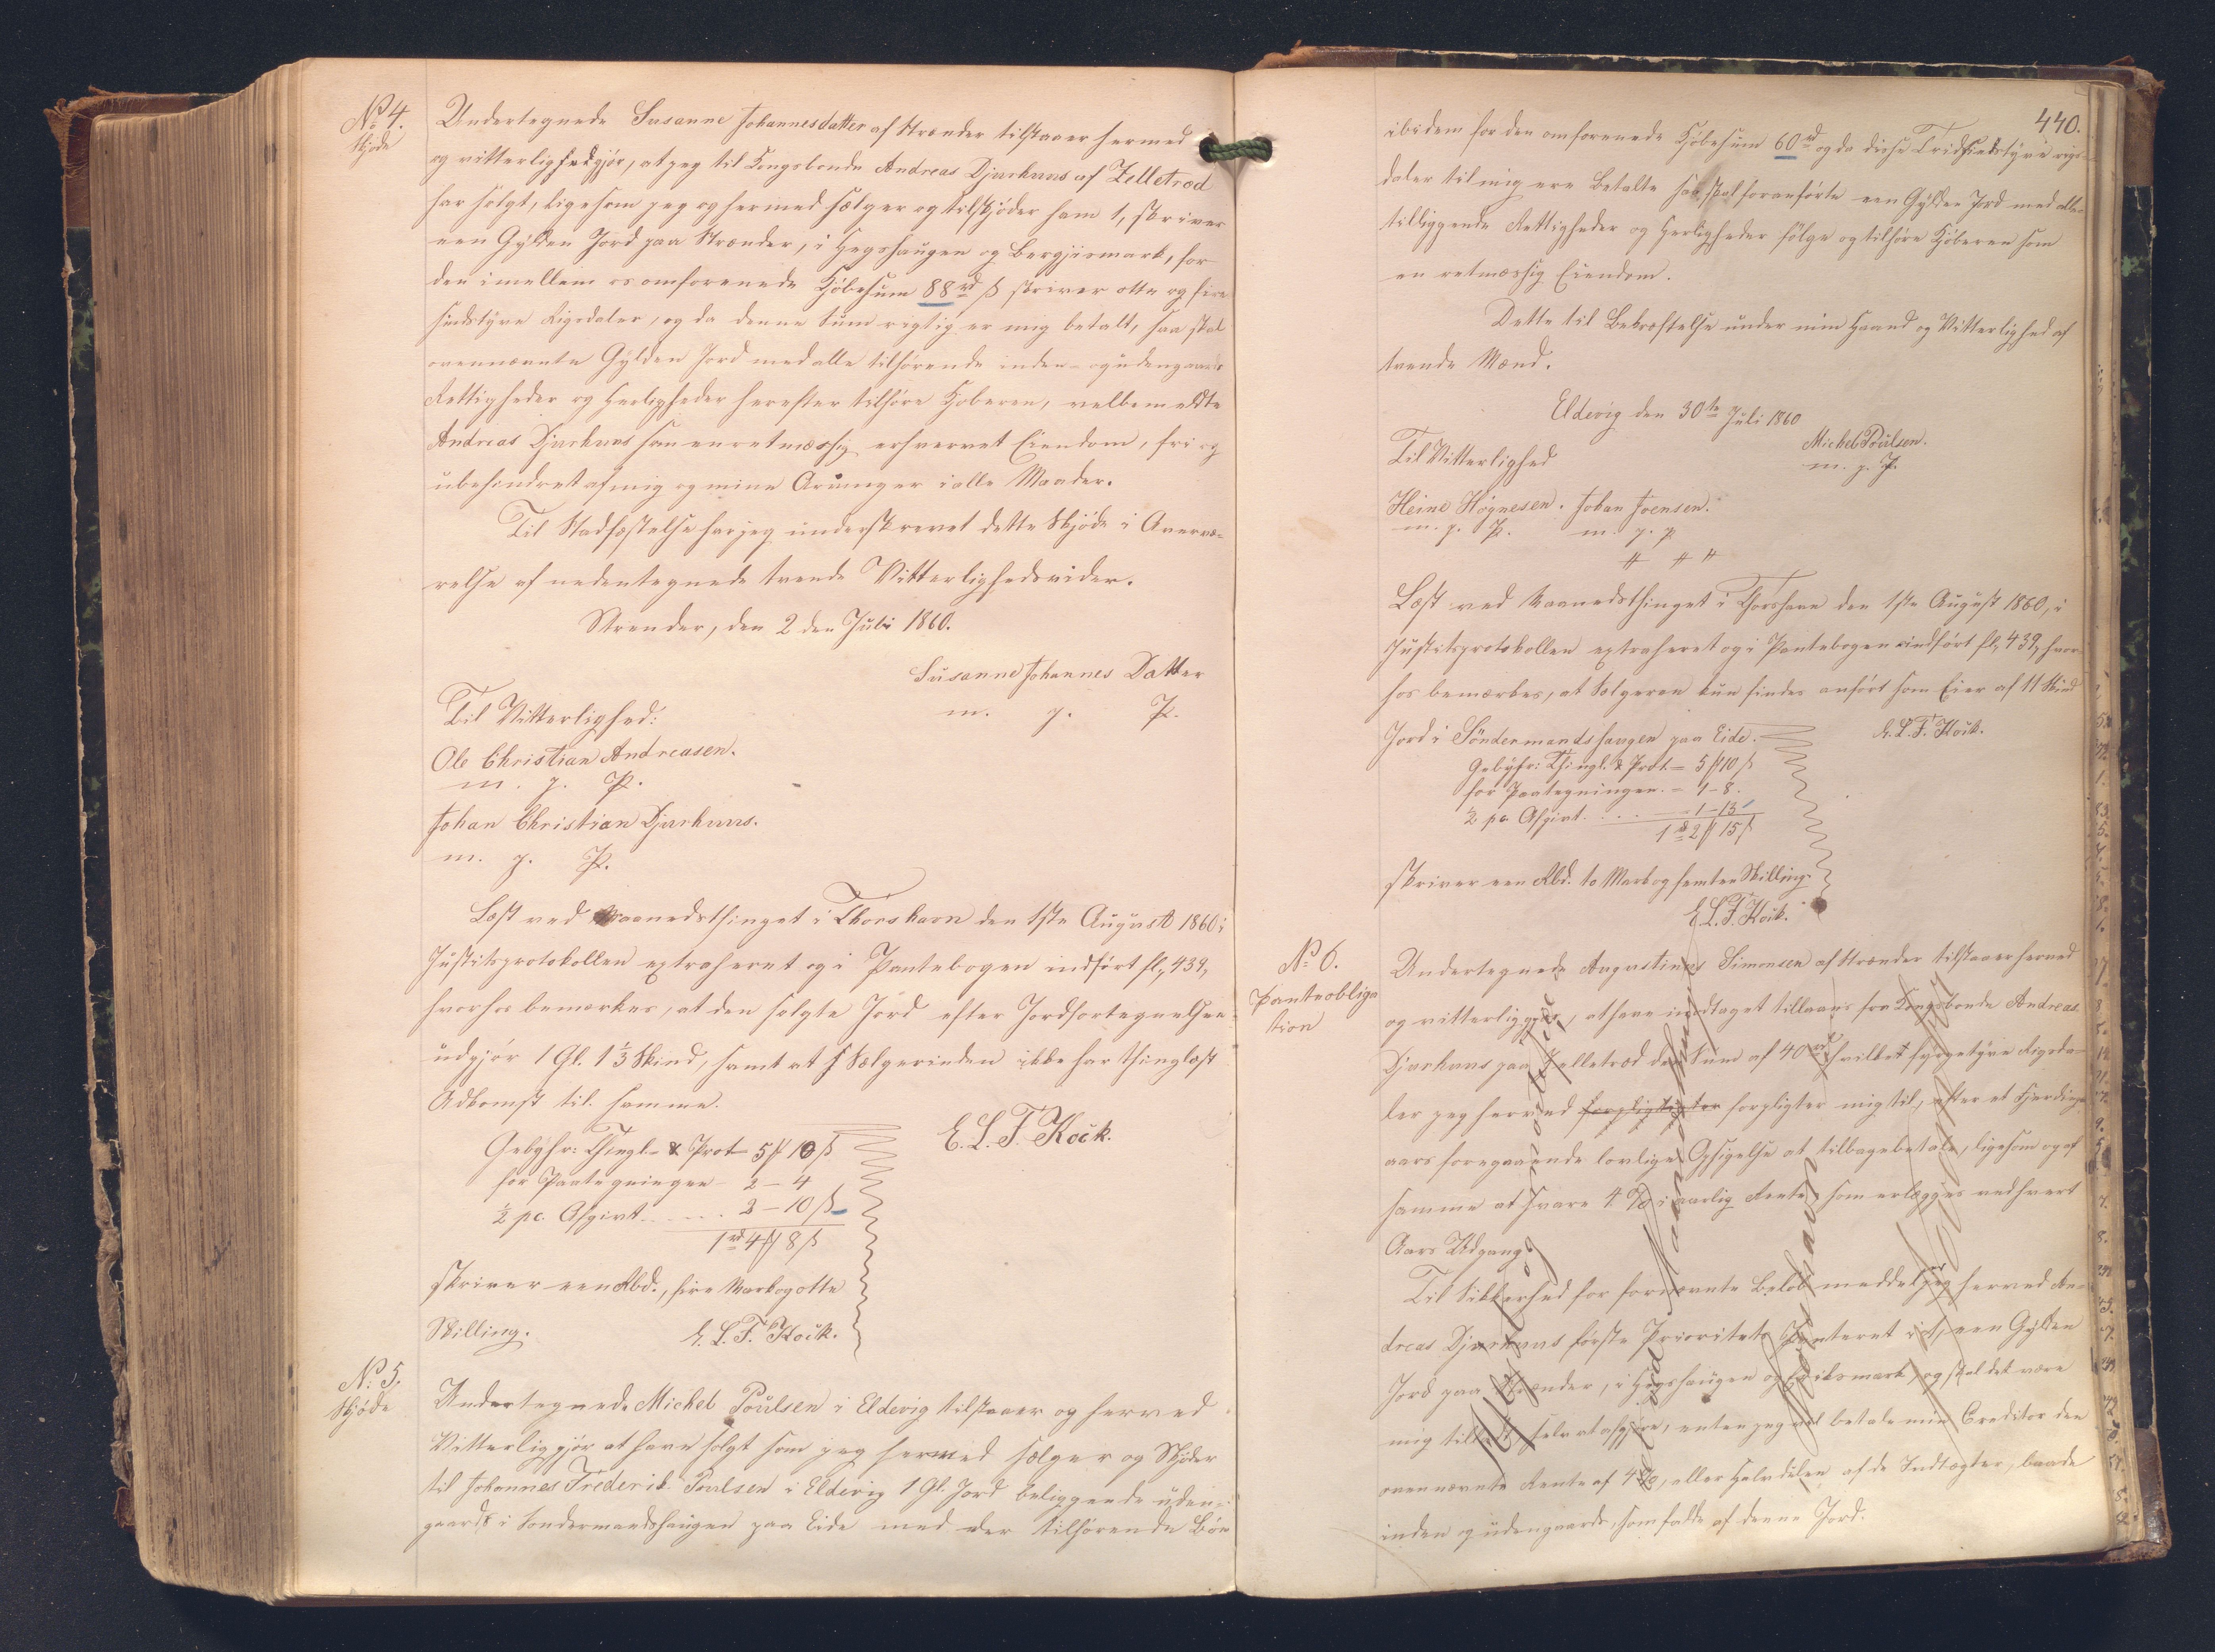 No 4.
Skjøde
Undertegnede Susanne Johannesdatter af Strænder tilstaaer hermed
og vitterlighedgjør, at jeg til Kongsbonde Andreas Djurhuus af Zelletræd
har solgt, ligesom jeg og hermed sælger og tilskjøder ham 1, skriver
een Gylden Jord paa Strænder, i Hegshaugen og Bergjismark, for
den imellem os omforenede Kjøbesum 88 rd ß skriver otte og fire
sindstyve Rigsdaler, og da denne Sum rigtig er mig betalt, saa skal
ovennævnte Gylden Jord med alle tilhørende inden- og udengaards
Rettigheder og Herligheder herefter tilhøre Kjøberen, velbemeldte
Andreas Djurhuus som en retmæssig erhvervet Eiendom, fri og
ubehindret af mig og mine Arvinger i alle Maader.
Til Stadfæstelse har jeg underskrevet dette Skjøde i Overvæ-
relse af nedentegnede tvende Vitterlighedsvider.
Strænder, den 2 den Juli 1860.
Susanne Johannes Datter
m. p. P.
Til Vitterlighed:
Ole Christian Andreasen.
m. p. P.
Johan Christian Djurhuus.
m. p. P.
Læst ved Maanedsthinget i Thorshavn den 1ste August 1860 i
Justitsprotokollen extraheret og i Pantebogen indført fl, 439,
hvorhos bemærkes, at den solgte Jord efter Jordfortegnelsen
udgjør 1 Gl. 1 1/3 Skind, samt at Sælgerinden ikke har thinglæst
Adkomst til samme.
E. L. T. Kock.
Gebyhr: Thingl. & Prot 5 ƒ 10 ß
for Paategningen - 2 - 4
1/2 pc. Afgivt . . . . 2 - 10 ß
1 rd 4 ƒ 8 ß
skriver een Rbd., fire Mark og otte
Skilling.
E. L. T. Kock.
No 5.
Skjøde
Undertegnede Michel Poulsen i Eldevig tilstaaer og herved
Vitterliggjør at have solgt som jeg hermed sælger og Skjøder
til Johannes Frederik Poulsen i Eldevig 1 Gl. Jord beliggende uden-
gaards i Søndermandshaugen paa Eide med der tilhørende
440.
ibidem for den omforenede Kjøbesum 60 rd og da disse Tridsindstyve rigs-
daler til mig ere Betalte saa skal foranførte een Gylden Jord med alle
tilliggende Rettigheder og Herligheder følge og tilhøre Kjøberen som
en retmæssig Eiendom.
Dette til Bekræftelse under min Haand og Vitterlighed af
tvende Mænd.
Eldevig den 30te Juli 1860
Michel Poulsen.
m. p. P.
Til Vitterlighed
Heine Høgnesen. Johan Joensen.
m. p. P. m. p. P
Læst ved Maanedsthinget i Thorshavn den 1ste August 1860, i
Justitsprotokollen extraheret og i Pantebogen indført fl, 439, hvor-
hos bemærkes, at Sælgeren kun findes anført som Eier af 11 Skind
Jord i Søndermandshaugen paa Eide.
E. L. T. Kock.
Gebyhr: Thingl. & Prot - 5 ƒ 10 ß
for Paategningen. - 1 - 8.
1/2 pc. Afgivt. . . . - 1 - 13
1 rd 2 ƒ 15 ß
skriver een Rbd. to Mark og femten Skilling.
E. L. T. Kock.
No 6.
Panteobliga
tion
Undertegnede Augustinus Simonsen af Strænder tilstaaer herved
og vitterliggjør, at have modtaget tillaans fra Kongsbonde Andreas
Djurhuus paa Zelletræd den Sum af 40 rd, hvilket fyrgetyve Rigsda-
ler jeg herved forpligtigter forpligter mig til, efter et Fjerding-
aars foregaaende lovlige Opsigelse at tilbagebetale, ligesom og af
samme at svare 4 % i aarlig Rente, som erlægges ved hvert
Aars Udgang.
Til Sikkerhed for fornævnte Beløb meddeler jeg herved An-
dreas Djurhuus første Prioritets Panteret i 1, een Gylden
Jord paa Strænder, i Hegshaugen og Eriksmark, og skal det være
mig tilladt selv at afgjøre, enten jeg vil betale min Creditor den
ovennævnte Rente af 4 %, eller Halvdelen af de Indtægter, baade
inden og udengaards, som falde af denne Jord.